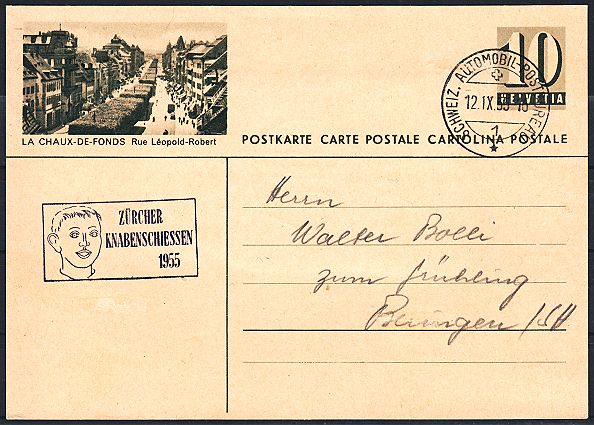 LA CHAUX-DE-FONDS Rue Léopold-Robert
10
HELVETIA
SCHWEIZ. AUTOMOBIL-POSTBUREAU
12.IX.55-15
1
POSTKARTE CARTE POSTALE CARTOLINA POSTALE
ZÜRCHER
KNABENSCHIESSEN
1955
Herrn
Walter Bolli
zum Frühling
Beringen/SH